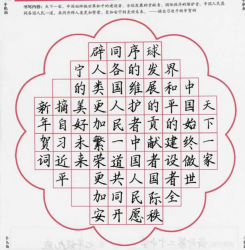 书写内容：天下一家。中国始终做世界和平的建设者、全球发展的贡献者、国际秩序的维护者。中国人民愿
同各国人民一道，共同开辟人类更加繁荣、更加安宁的美好未来。——摘自习近平新年贺词
天下一家
中国始终做世
界和平的建设者全
球发展的贡献者国际秩
序的维护者中国人民愿
同各国人民一道共同开
辟人类更加繁荣更加安
宁的美好未来
摘自习近平
新年贺词